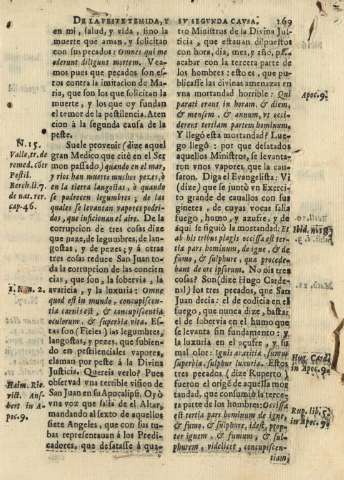 DE LA PESTE TEMIDA, Y SV SEGUNDA CAVSA. 169
en mi, salud, y vida, sino la
muerte què aman, y solicitan
con sus pecados: Omnes qui me
oderunt diligunt mortem. Vea-
mos pues que pecados son, es-
tos contra la imitacion de Ma-
ria, que son los que solicitan la
muerte, y los que oy fundan
el temor de la pestilencia. Aten
cion à la segunda causa de la
peste.
N. 15.
Valle, tr. de
remed. cõtr
Pestil.
Berch. li. 7.
de nat. rer.
cap. 46.
Suele provenir (dize aquel
gran Medico que citè en el Ser
mon passado) quando en el mar,
y rios han muerto muchos pezes, ò
en la tierra langostas, ò quando
se padrecen legumbres; de las
quales se levantan vapores podri-
dos, que inficionan el aire. De la
corrupcion de tres cosas dize
que naze, de legumbres, de lan-
gostas, y de pezes; y à otras
tres cosas reduce San Juan toda
la corrupcion de las concien-
cias, que son, la sobervia, la
avaricia, y la luxuria: Omne
quod est in mundo, concupiscen-
tia carnis est, & concupiscentia
oculorum, & superbia vita. Es-
tas son (Fieles) las legumbres,
langostas, y pezes, que subien-
do en pestilenciales vapores,
claman por peste à la Divina
Justicia. Quereis verlo? Pues
observad vna terrible vision de
San Juan en su Apocalipsi. Oyò
vna voz que salia de el Altar,
mandando al sexto de aquellos
siete Angeles, que con sus tu-
bas representauan à los Predi-
cadores, que desatasse à qua-
tro Ministros de la Divina Jus-
ticia, que estauan dispuestos
con hora, dia, mes, y año, pa-
ra acabar con la tercera parte de
los hombres: esto es, que pu-
blicasse las divinas amenazas en
vna mortandad horrible: Qui
parati erant in horam, & diem,
& mensem, & annum, vt occi-
derent tertiam partem hominum.
Apoc. 9.
Y llegò esta mortandad? Lue-
go llegò: por que desatados
aquellos Ministros, se levanta-
ron vnos vapores, que la cau-
saron. Diga el Evangelista: Vi
(dize) que se juntò vn Exerci-
to grande de cavallos con sus
ginetes, de cuyas vocas salia
fuego, humo, y azufre, y de
aqui se siguiò la mortandad: Et
ab his tribus plagis occissa est ter-
tia pars hominum, de igne, & de
fumo, & sulphure, quæ procede-
bant de ore ipsorum. No ois tres
cosas? Son (dize Hugo Carde-
nal) los tres pecados, que San
Juan decia: el de codicia en el
fuego, que nunca dize, basta:
el de sobervia en el humo que
se levanta sin fundamento: y
la luxuria en el açufre, y su
mal olor: Ignis avaritia, fumus
superbia, sulphur luxuria. Estos
tres pecados (dize Ruperto)
fueron el origẽ de aquella mor-
tandad, que consumiò la terce-
ra parte de los hombres: Occissa
est tertia pars hominum de igne,
& fumo, & sulphure, idest, prop-
ter ignem, & fumum, & sul-
phurem, videlicet, concupiscen-
1. Ioan. 2.
Haim. Ric.
vict. Ans-
bert in A-
poc. 9.
Hug. Card.
in Apoc. 9.
Rup. lib. 5.
in Apoc. 9.